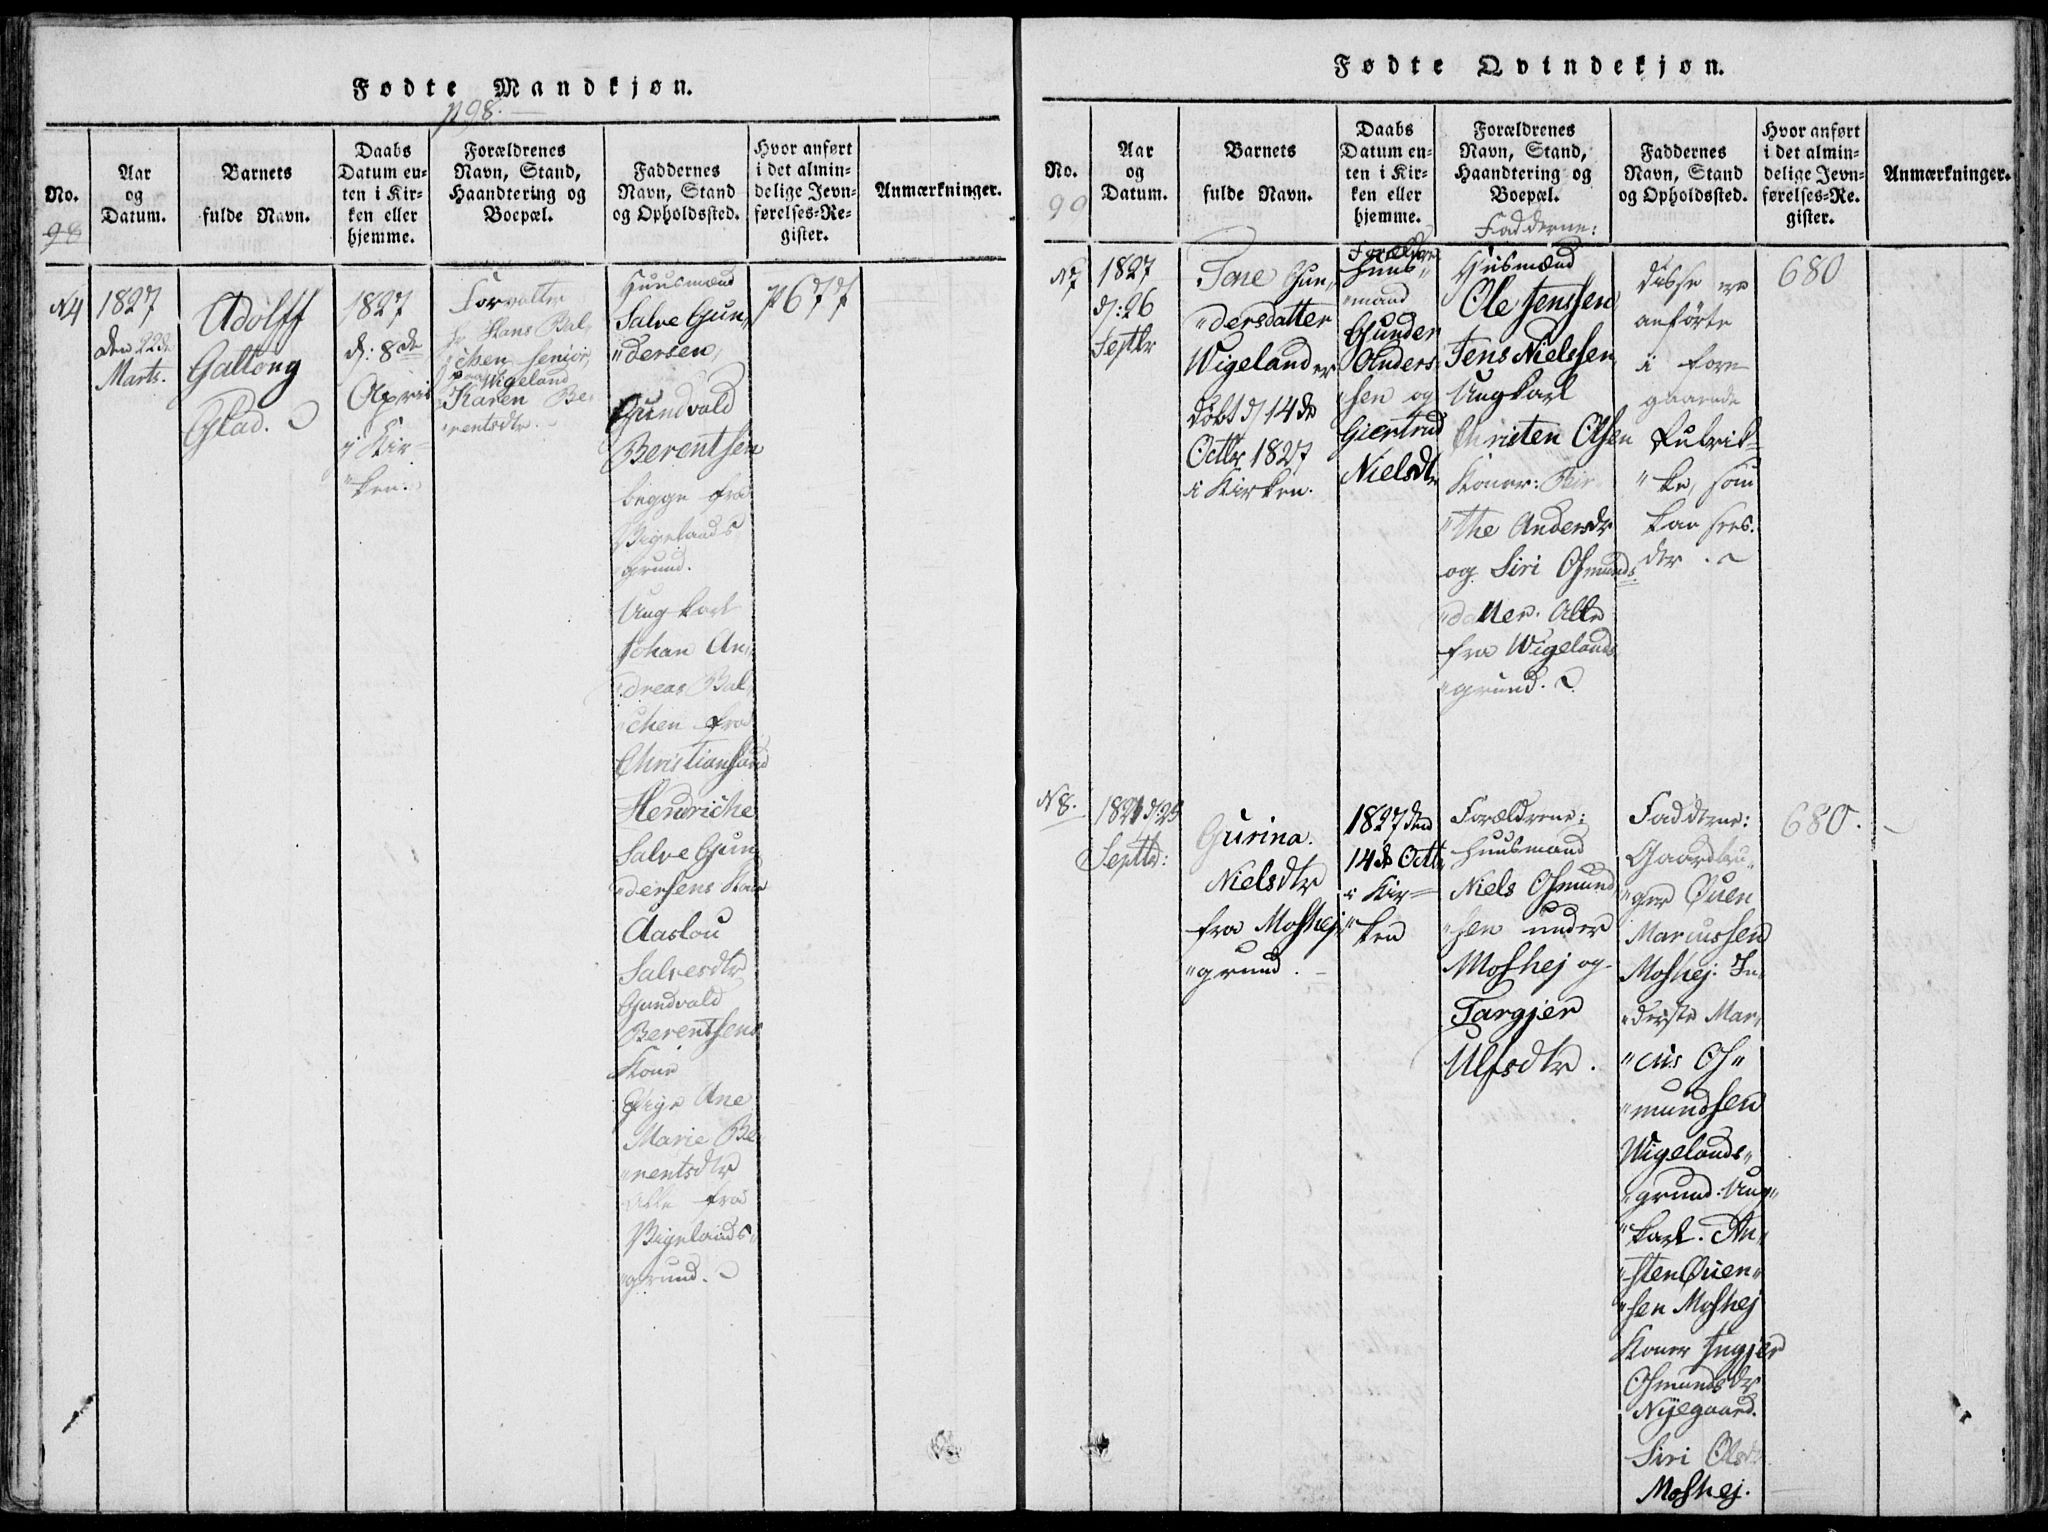 Fødte Mandkjøn.
p 98.
No.
98
Aar
og
Datum.
Barnets
fulde Navn.
Daabs
Datum en-
ten i Kir-
ken eller
hjemme.
Forældrenes
Navn, Stand,
Haandtering og
Boepæl.
Faddernes
Navn, Stand
og Opholdssted.
Hvor anført
i det almin-
delige Jevn-
førelses-Re-
gister.
Anmærkninger.
N4
1827
den 22de
Marts.
Adolff
Galtong
1827
d: 8de
April
i Kir-
"ken.
Forvalter
Hr. Hans Bal,
"chen senior,
paa Wigeland
Karen Be-
"rentsdtr.
Huusmænd
Salve Gun,
"dersen,
Gundvald
Berentsen
begge fra
Vigelands
grund.
Ungkarl
Johan An,
"dreas Bal,
"chen fra
Christiansand
Hendriche
Salve Gun,
"dersens Kone
Aaslou
Salvesdtr
Gundvald
Berentsens
Kone
Pige Ane
Marie Be,
"rentsdtr
Alle fra
Vigelands-
"grund.
p 677
Fødte Qvindekjøn.
No.
99
Aar
og
Datum.
Barnets
fulde Navn.
Daabs
Datum en-
ten i Kir-
ken eller
hjemme.
Forældrenes
Navn, Stand,
Haandtering og
Boepæl.
Faddernes
Navn, Stand
og Opholdssted.
Hvor anført
i det almin-
delige Jevn-
førelses-Re-
gister.
Anmærkninger.
N7
1827
d: 26
Septbr
Tone Gun,
"dersdatter
Wigeland er
døbt d 14de
Octbr 1827
i Kirken.
Forældre
Huus"
"mand
Gunder
Anders-
"sen og
Giertrud
Nielsdtr
Fadderne:
Husmænd
Ole Jenssen,
Jens Nielssen,
Ungkarl
Christen Olsen
Koner: Bir
"the Andersdr
og Siri Osmunds
"datter. Alle
fra Wigelands
"grund.
disse ere
anførte
i fore
gaaende
Rubrik-
"ke, som
kan sees
der.
680
N8.
1827 d: 25
Septbr:
Gurina.
Nielsdtr
fra Moshej
"grund.
1827 den
14de Octbr
i Kir-
"ken
Forældrene:
Huusmand
Niels Osmund,
"sen under
Moshej og
Targjer
Ulfsdtr.
Fadderne:
Gaardbru-
"ger Øuen
Marcussen
Moshej: In,
"derste Mar,
"cus Os"
"mundsen
Wigelands-
"grund: Ung-
"karl. An-
"sten Øuen"
"sen Moshej
Koner Ingjer
Osmundsdr
Nyegaard.
Siri Olsdr
Moshej.
680.